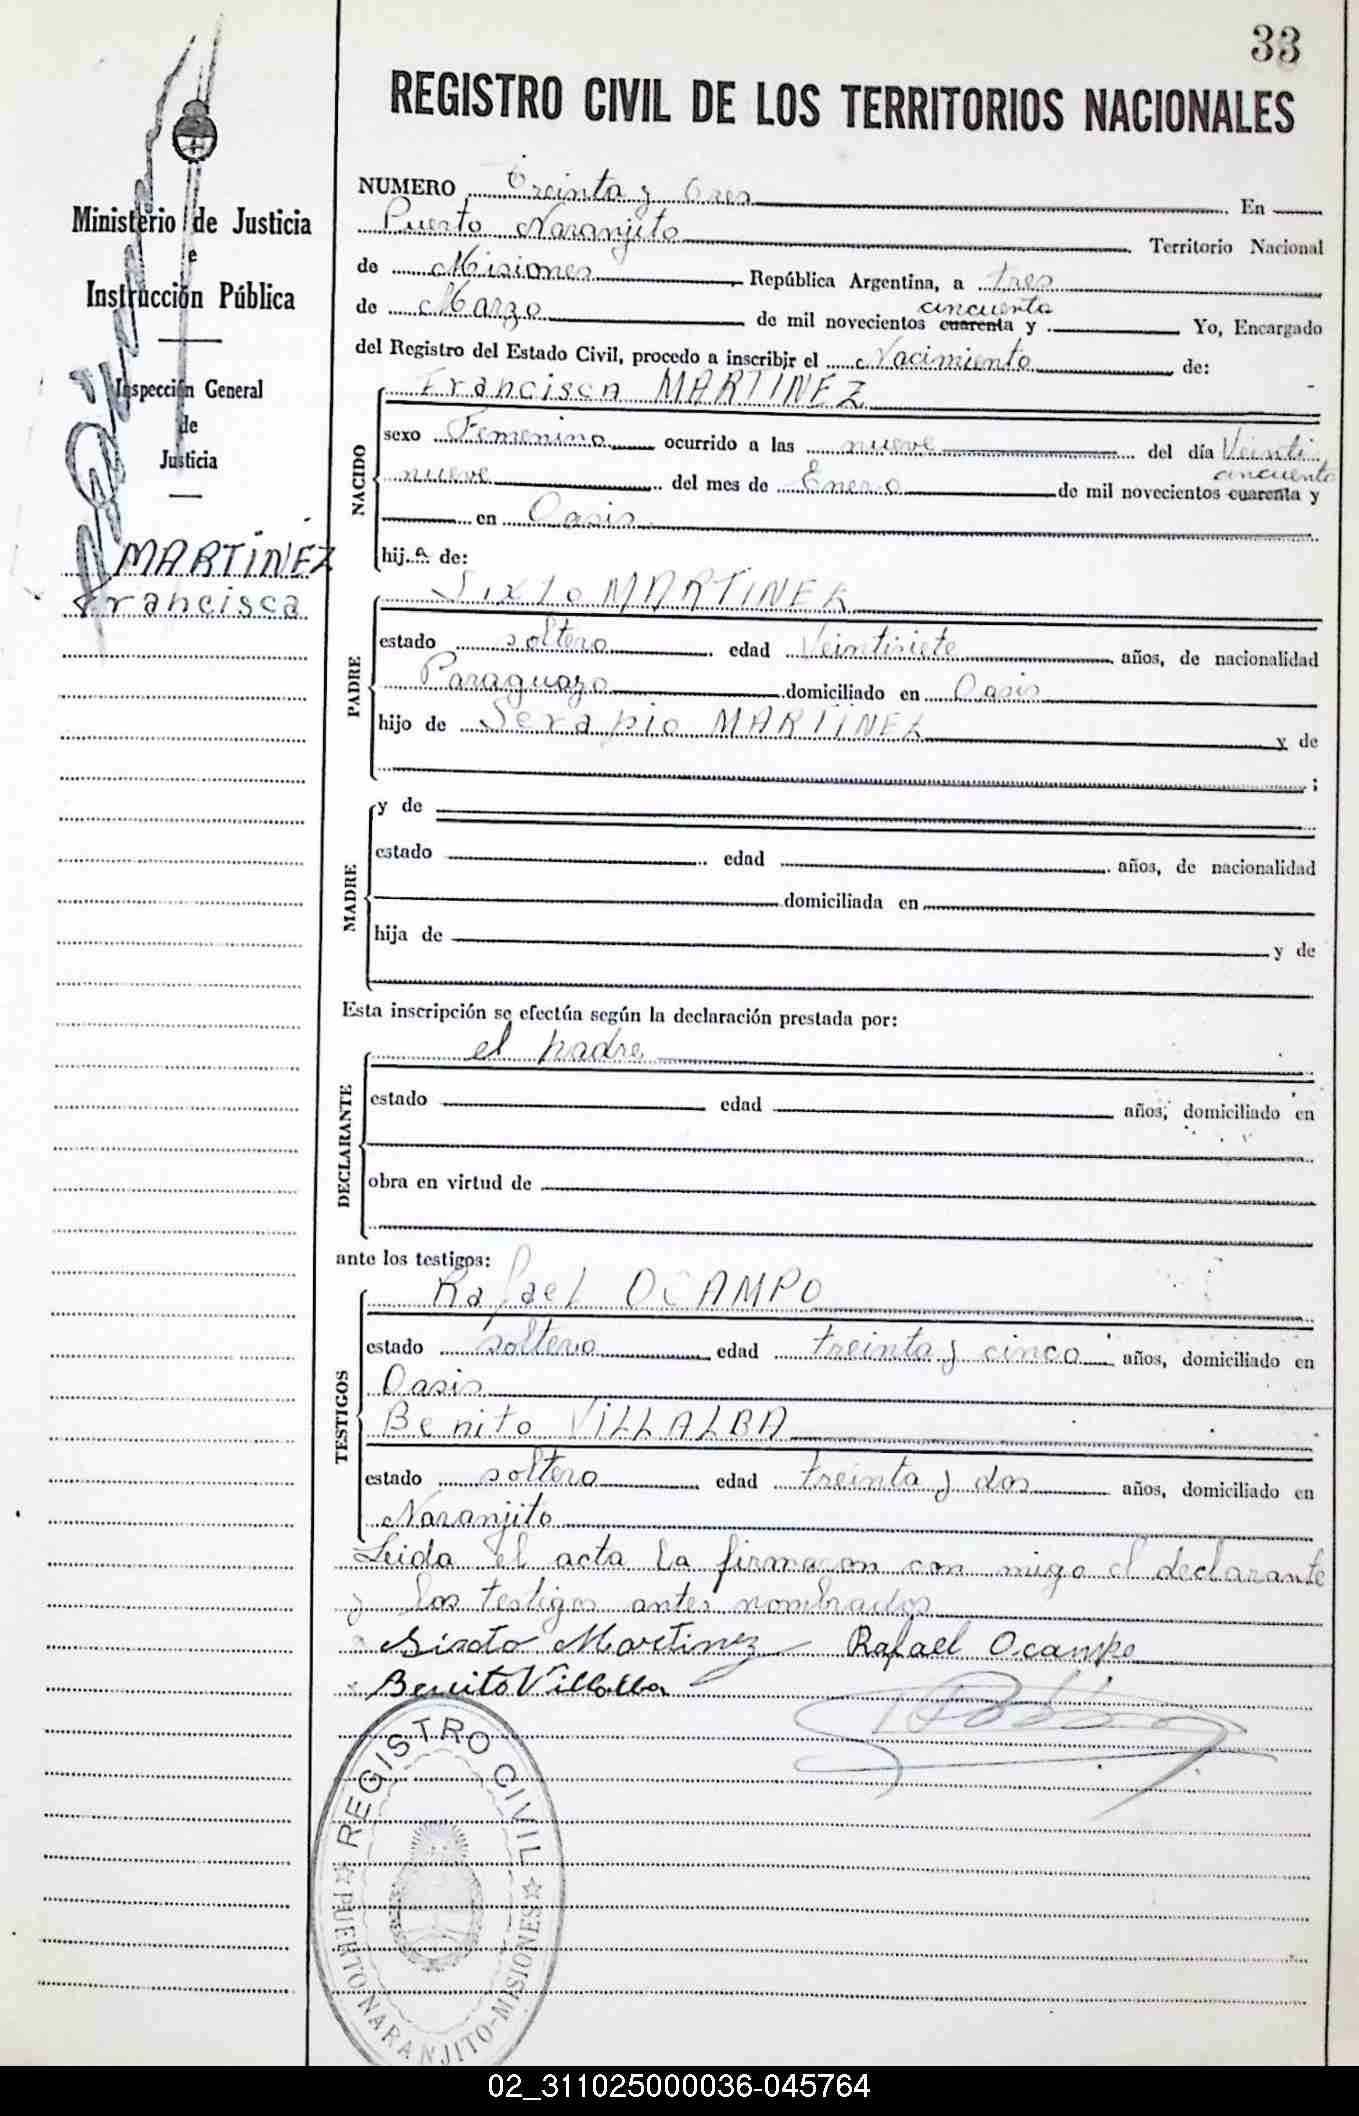 33
REGISTRO CIVIL DE LOS TERRITORIOS NACIONALES
Ministerio de Justicia
e
Instrucción Pública
Inspección General
de
Justicia
MARTINEZ
Francisca
NUMERO Treinta y tres En
Puerto Naranjito Territorio Nacional
de Misiones República Argentina, a tres
de Marzo de mil novecientos cuarenta cincuenta y Yo, Encargado
del Registro del Estado Civil, procedo a inscribir el Nacimiento de:
NACIDO
Francisca MARTINEZ
sexo Femenino ocurrido a las nueve del día Veinti
nueve del mes de Enero de mil novecientos cuarenta cincuenta y
en Oasis
hij a de:
PADRE
Sixto MARTINEZ
estado soltero edad Veintisiete años, de nacionalidad
Paraguayo domiciliado en Oasis
hijo de Serapio MARTINEZ y de
;
MADRE
y de
estado edad años, de nacionalidad
domiciliada en
hija de y de
Esta inscripción se efectúa según la declaración prestada por:
DECLARANTE
el padre
estado edad años, domiciliado en
obra en virtud de
ante los testigos:
TESTIGOS
Rafael OCAMPO
estado soltero edad treinta y cinco años, domiciliado en
Oasis
Benito VILLALBA
estado soltero edad treinta y dos años, domiciliado en
Naranjito
Leida el acta la firmaron con migo el declarante
y los testigos antes nombrados
Sixto Martinez Rafael Ocampo
Benito Villalba
REGISTRO CIVIL
PUERTO NARANJITO-MISIONES
02_311025000036-045764